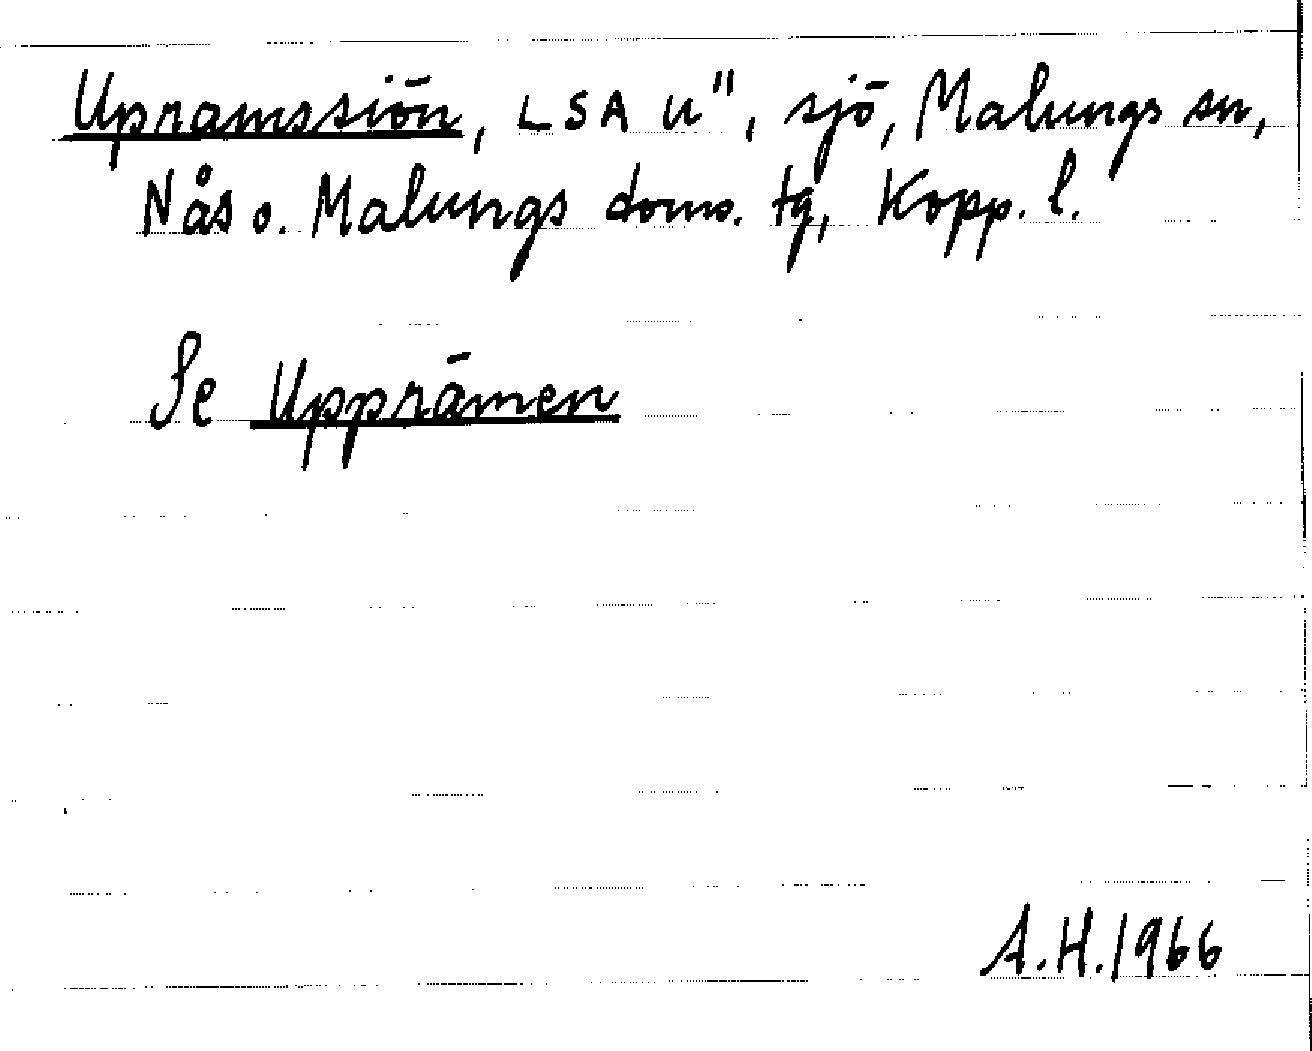 Upramssiön, LSA U", sjö, Malungs sn,
Nås o. Malungs doms. tg, Kopp. l.
Se Upprämen
A.H. 1966